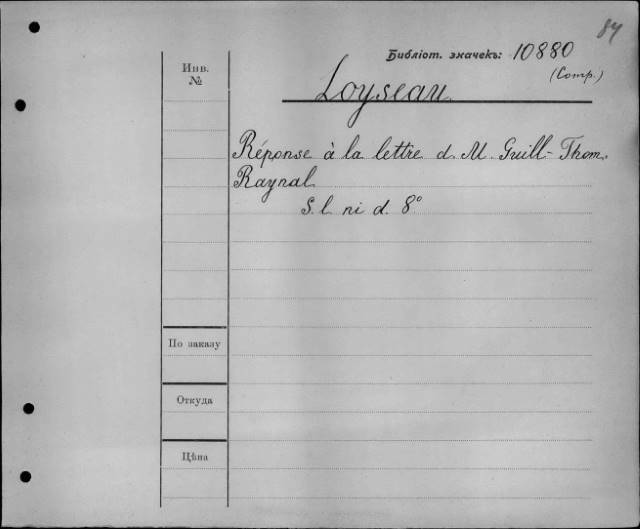 84
Библіот. значекъ: 10880
(Comp.)
Инв.
№
Loyseau.
Réponse à la lettre d. M. Guill-Thom.
Raynal
S. l. ni d. 8°
По заказу
Откуда
Цѣна